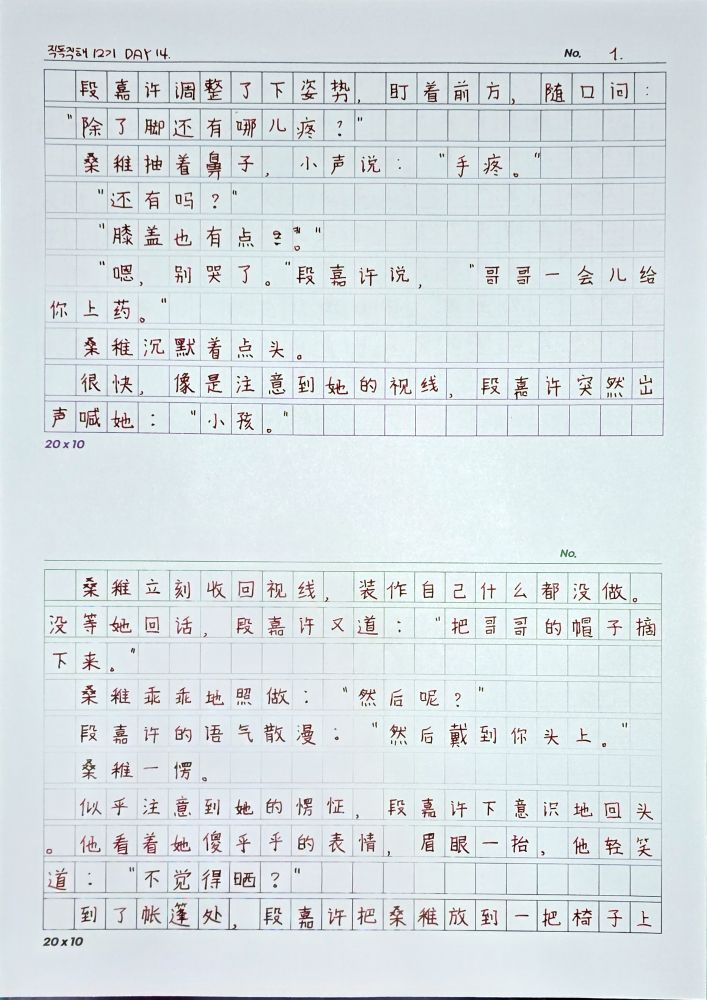 직독직해 12기 DAY 14.
No. 1.
段嘉许调整了下姿势，盯着前方，随口问：
"除了脚还有哪儿疼？"
桑稚抽着鼻子，小声说："手疼。"
"还有吗？"
"膝盖也有点。"
"嗯，别哭了。"段嘉许说，"哥哥一会儿给
你上药。"
桑稚沉默着点头。
很快，像是注意到她的视线，段嘉许突然出
声喊她："小孩。"
20 x 10
No.
桑稚立刻收回视线，装作自己什么都没做。
没等她回话，段嘉许又道："把哥哥的帽子摘
下来。"
桑稚乖乖地照做："然后呢？"
段嘉许的语气散漫："然后戴到你头上。"
桑稚一愣。
似乎注意到她的愣怔，段嘉许下意识地回头
。他看着她傻乎乎的表情，眉眼一抬，他轻笑
道："不觉得晒？"
到了帐篷处，段嘉许把桑稚放到一把椅子上
20 x 10